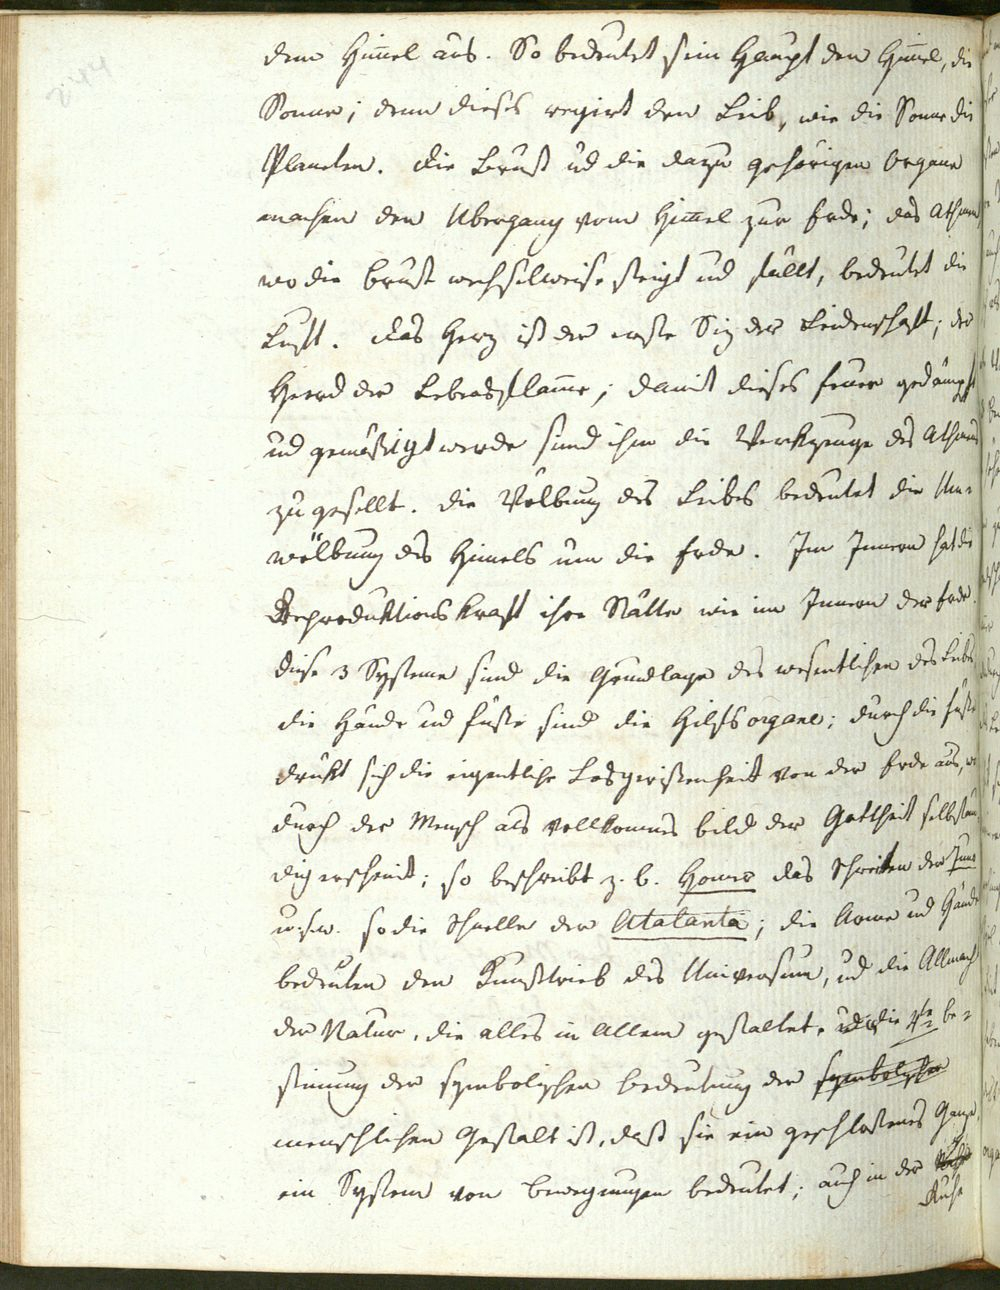 dem Him̄el aus. So bedeutet sein Haupt den Him̄el, die
Sonne; denn dieses regirt den Leib, wie die Sonne die
Planeten. Die Brust ud die dazu gehörigen Organe
machen den Ubergang vom Him̄el zur Erde; das Athmen
wo die Brust wechselweise steigt ud fällt, bedeutet die
Luft. Das Herz ist der erste Siz der Leidenschaft; der
Heerd der Lebensflam̄e; damit dieses Feuer gedämpft
ud gemäßigt werde sind ihm die Werkzeuge des Athmens
zu gesellt. Die Wölbung des Leibes bedeutet die Um-
wölbung des Him̄els um die Erde. Im Innern hat die
Reproduktionskraft ihre Stätte wie im Innern der Erde.
diese 3 Systeme sind die Grundlage des wesentlichen des Leibes
die Hände ud Füße sind die Hilfsorgane; durch die Füße
drükt sich die eigentliche Losgerissenheit von der Erde aus, wo
durch der Mensch als vollkom̄nes bild der Gottheit selbststän
dig erscheint; so beschreibt z. b. Homer das Schreiten der Juno
u.s.w. so die Schnelle der Atalanta; die Arme ud Hände
bedeuten den Kunsttrieb des Universum, ud die Allmacht
der Natur, die alles in Allem gestaltet. die 4te be-
stim̄ung der symbolischen bedeutung der symbolischen
menschlichen Gestalt ist, daß sie ein geschloßenes Ganze,
ein System von bewegungen bedeutet; auch in der
Ruhe